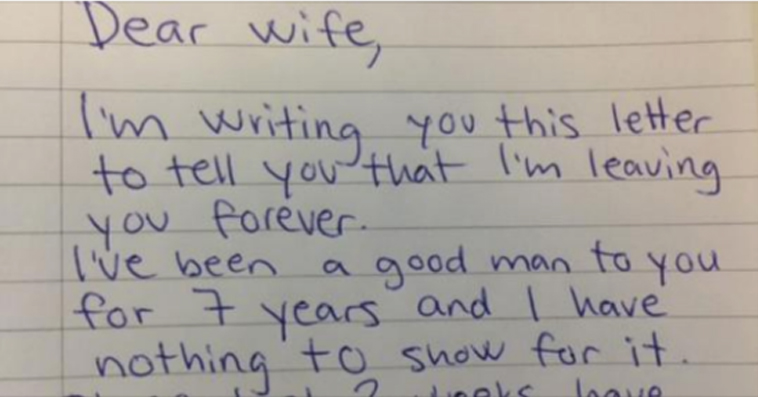 Dear wife,
I'm writing you this letter
to tell you that I'm leaving
you forever.
I've been a good man to you
for 7 years and I have
nothing to show for it.
2 weeks have